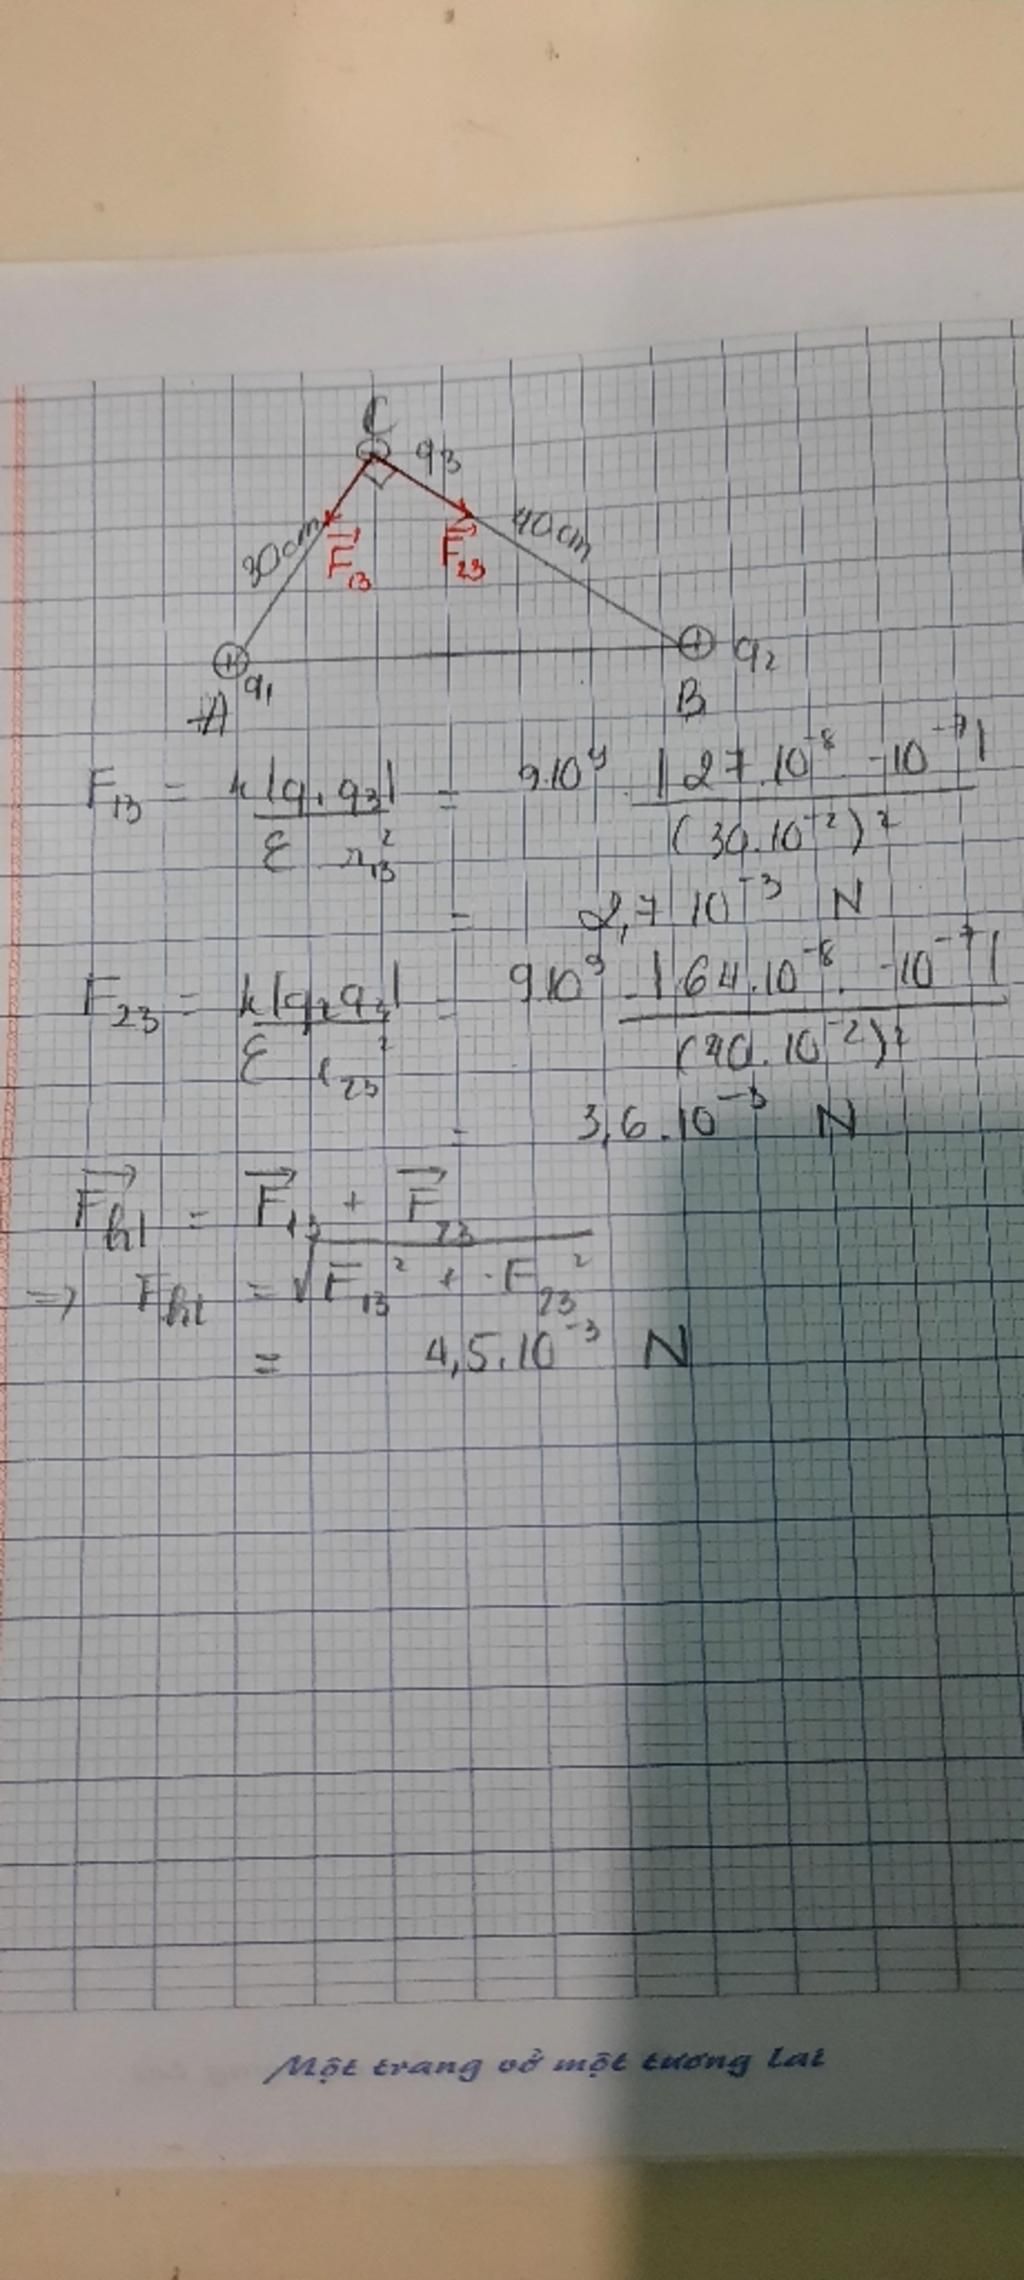 C
q3
30cm
F13
F23
40cm
q1
q2
A
B
F13 = k|q1 q3| / ε r13² = 9.10⁹ . |27.10⁻⁸ . -10⁻⁷| / (30.10⁻²)²
= 2,7 10⁻³ N
F23 = k|q2 q3| / ε r23² = 9.10⁹ . |64.10⁻⁸ . -10⁻⁷| / (40.10⁻²)²
= 3,6.10⁻³ N
F⃗hl = F⃗13 + F⃗23
=> Fhl = √F13² + F23²
= 4,5.10⁻³ N
Một trang vở một tương lai